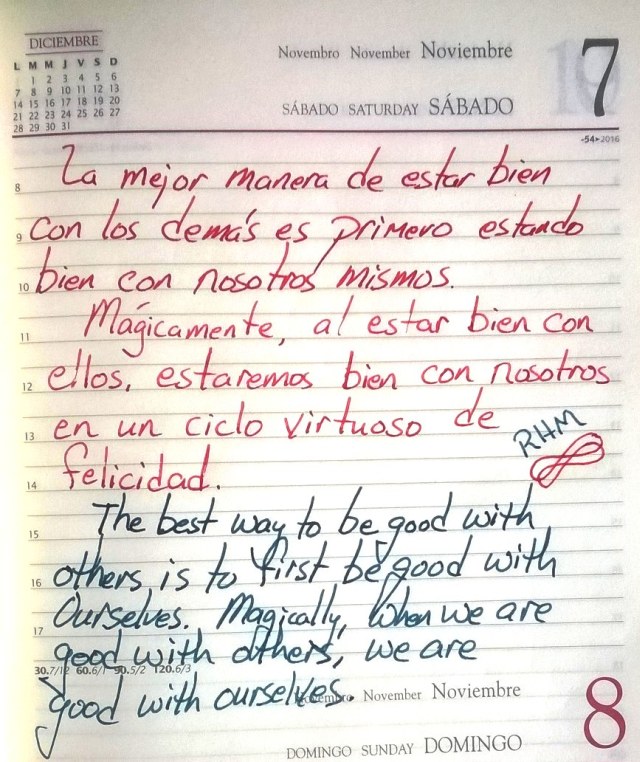 DICIEMBRE
L M M J V S D
1 2 3 4 5 6
7 8 9 10 11 12 13
14 15 16 17 18 19 20
21 22 23 24 25 26 27
28 29 30 31
Novembro November Noviembre
7
SÁBADO SATURDAY SÁBADO
-54-2016
8 La mejor manera de estar bien
9 con los demás es primero estando
10 bien con nosotros mismos.
11 Mágicamente, al estar bien con
12 ellos, estaremos bien con nosotros
13 en un ciclo virtuoso de
RHM
14 felicidad.
15 The best way to be good with
16 others is to first be good with
17 Ourselves. Magically, when we are
good with others, we are
30.7/12 60.6/1 90.5/2 120.6/3
good with ourselves.
November Noviembre
8
DOMINGO SUNDAY DOMINGO